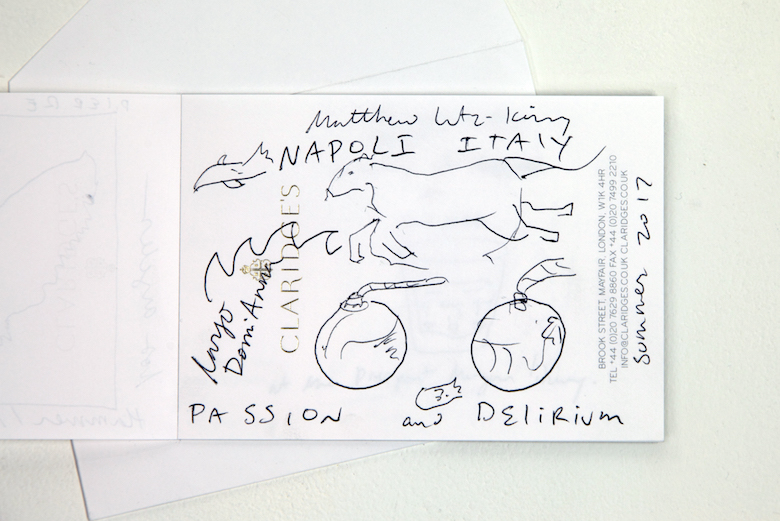 Matthew Lutz-Kinoy
NAPOLI ITALY
CLARIDGE'S
Largo
Donn'Anna
BROOK STREET, MAYFAIR, LONDON, W1K 4HR
TEL +44 (0)20 7629 8860 FAX +44 (0)20 7499 2210
INFO@CLARIDGES.CO.UK CLARIDGES.CO.UK
Summer 2017
PASSION and DELIRIUM